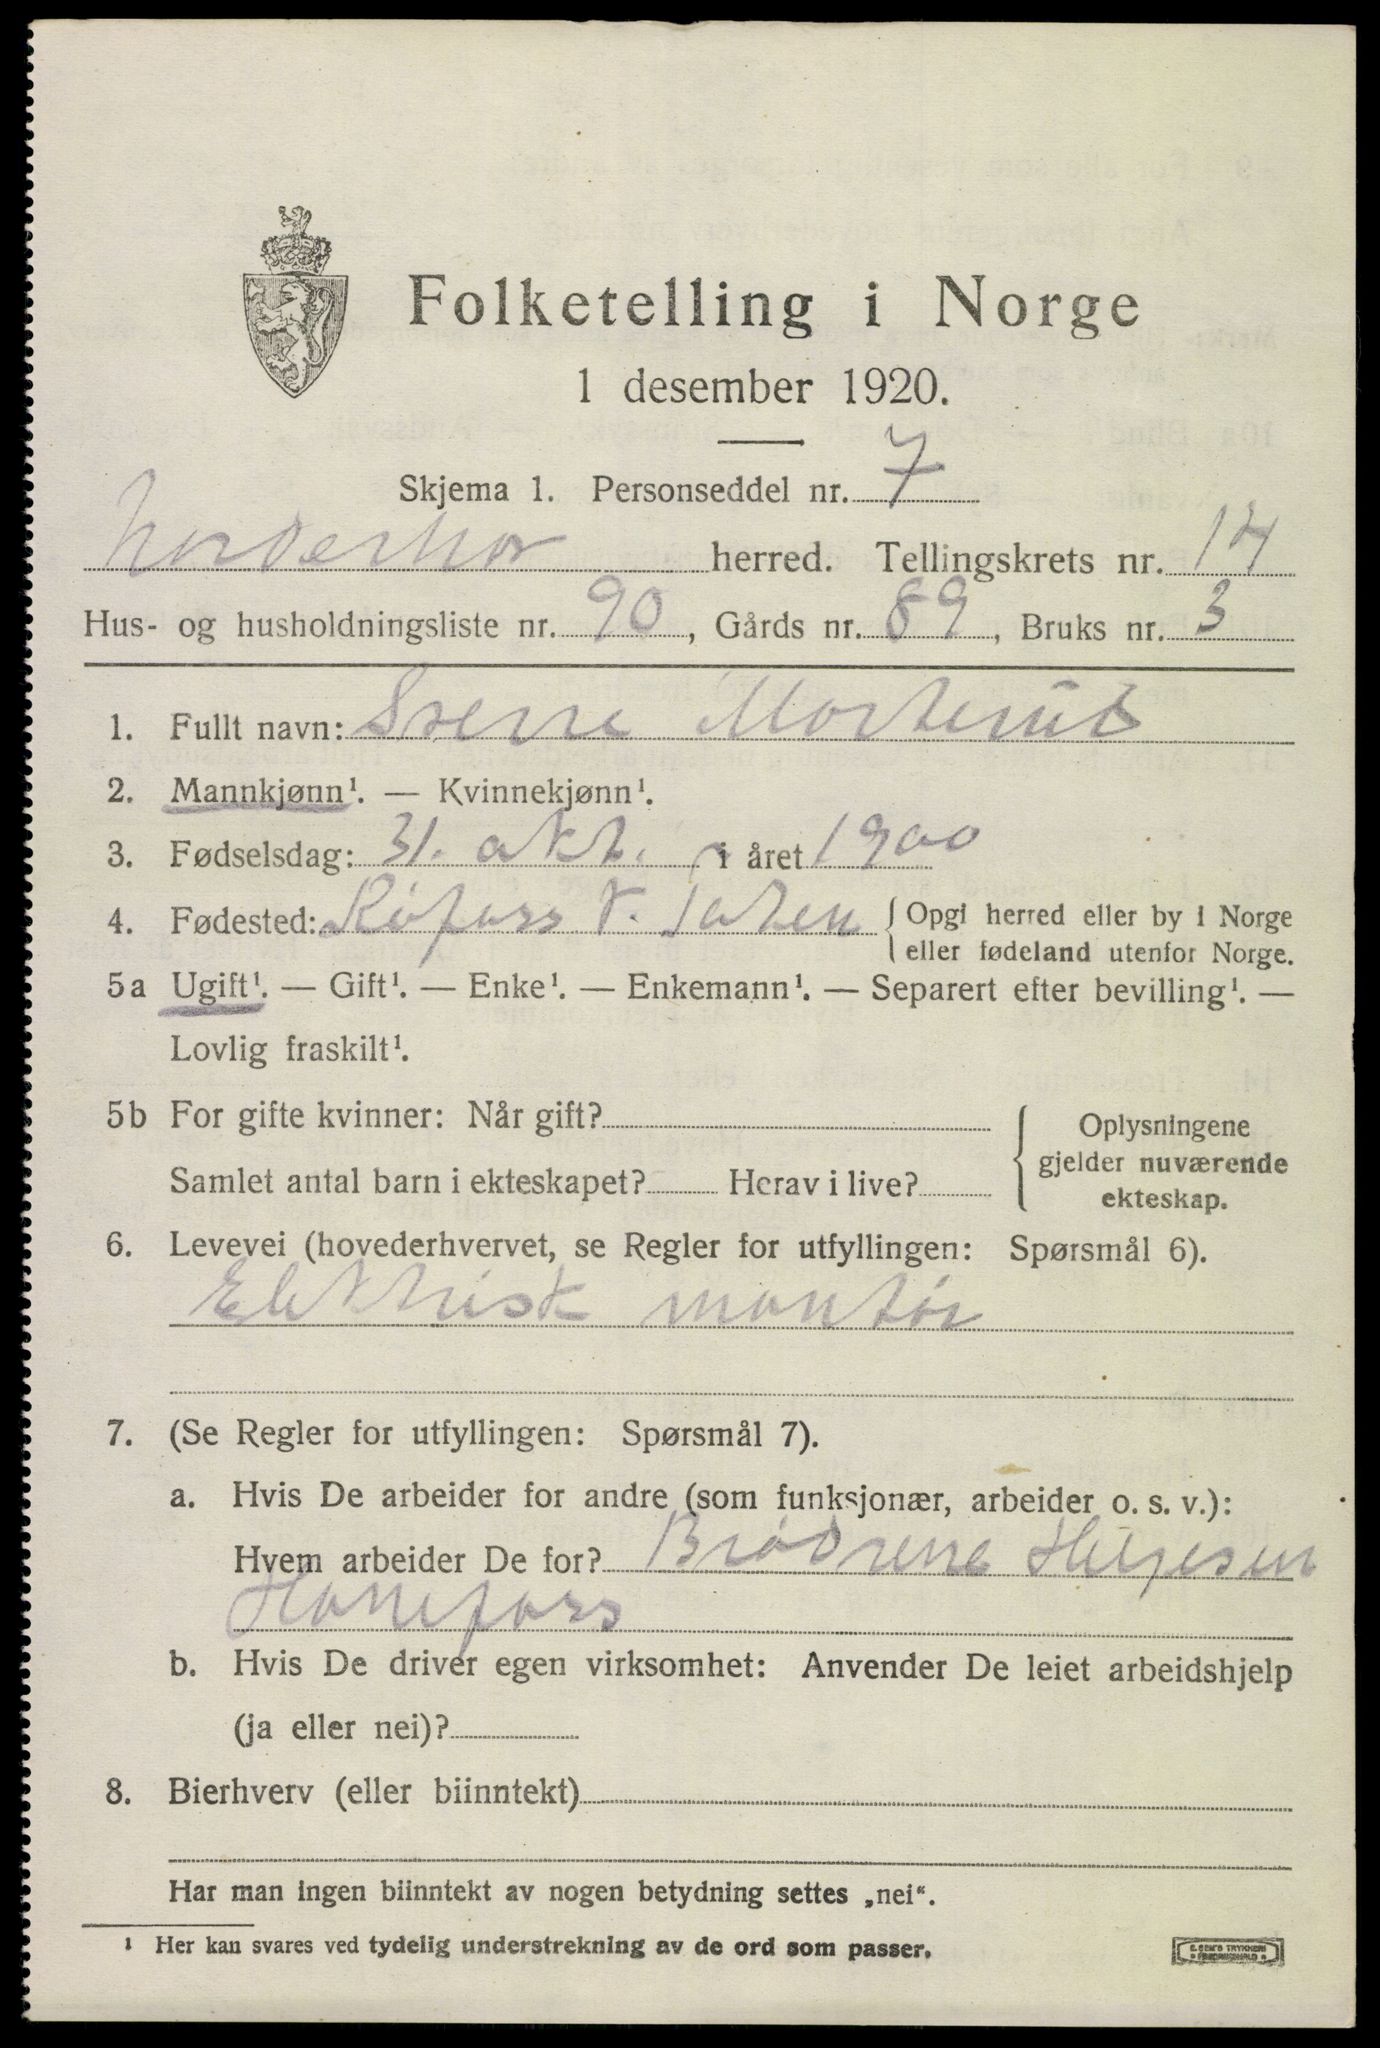 Folketelling i Norge
1 desember 1920.
Skjema 1. Personseddel nr. 7
Norderhov herred. Tellingskrets nr. 14
Hus- og husholdningsliste nr. 90, Gårds nr. 89, Bruks nr. 3
1. Fullt navn: Sverre
2. Mannkjønn¹. — Kvinnekjønn¹.
3. Fødselsdag: 31. okt. i året 1900
4. Fødested: V. Toten { Opgi herred eller by i Norge
eller fødeland utenfor Norge.
5a Ugift¹. — Gift¹. — Enke¹. — Enkemann¹. — Separert efter bevilling¹. —
Lovlig fraskilt¹.
5b For gifte kvinner: Når gift? { Oplysningene
gjelder nuværende
ekteskap.
Samlet antal barn i ekteskapet? Herav i live?
6. Levevei (hovederhvervet, se Regler for utfyllingen: Spørsmål 6).
Elektrisk montør
7. (Se Regler for utfyllingen: Spørsmål 7).
a. Hvis De arbeider for andre (som funksjonær, arbeider o. s. v.):
Hvem arbeider De for? Brødrene Helgesen
Hønefoss
b. Hvis De driver egen virksomhet: Anvender De leiet arbeidshjelp
(ja eller nei)?
8. Bierhverv (eller biinntekt)
Har man ingen biinntekt av nogen betydning settes „nei“.
¹ Her kan svares ved tydelig understrekning av de ord som passer.
E. SEM'S TRYKKERI
FREDRIKSHALD